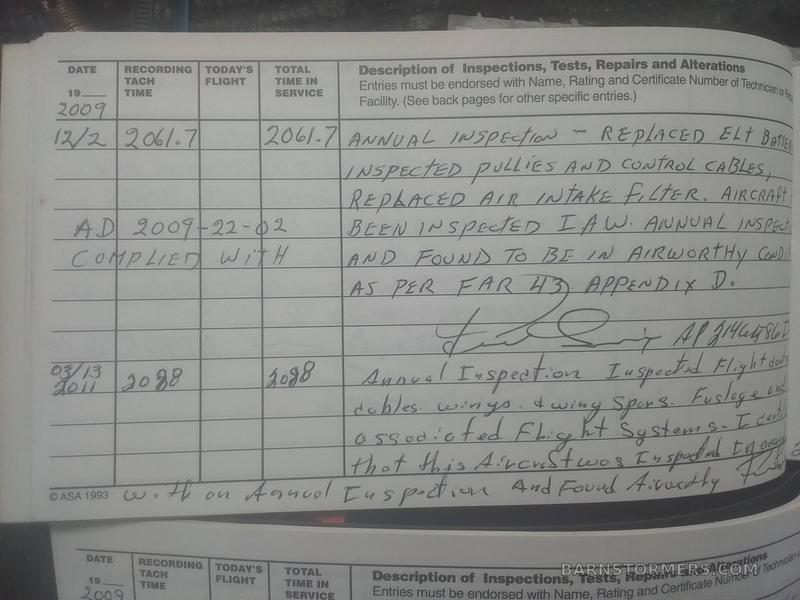 DATE
RECORDING TACH TIME
TODAY'S FLIGHT
TOTAL TIME IN SERVICE
Description of Inspections, Tests, Repairs and Alterations
Entries must be endorsed with Name, Rating and Certificate Number of Technician or
Facility. (See back pages for other specific entries.)
19
2009
12/2 2061.7 2061.7 ANNUAL INSPECTION - REPLACED ELT
INSPECTED PULLIES AND CONTROL CABLES,
REPLACED AIR INTAKE FILTER. AIRCRAFT
AD 2009-22-02 BEEN INSPECTED I A W. ANNUAL
COMPLIED WITH AND FOUND TO BE IN AIRWORTHY
AS PER FAR 43 APPENDIX D.
AP
03/13 2011 2028 2028 Annual Inspection Inspected Flight
cables. wings. & wing Spars. Fuslage and
associated Flight Systems. I
that this Aircraft was Inspected In
with an Annual Inspection And Found Airworthy
© ASA 1993
DATE
RECORDING TACH TIME
TODAY'S FLIGHT
TOTAL TIME IN SERVICE
Description of Inspections, Tests, Repairs and Alterations
Entries must be endorsed with Name, Rating and Certificate Number of Technician
19
2009
BARNSTORMERS.COM